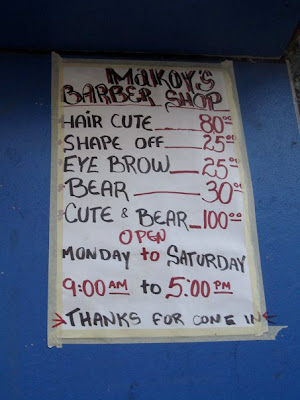 MAKOY'S
BARBER SHOP
HAIR CUTE 80.00
SHAPE OFF 25.00
EYE BROW 25.00
BEAR 30.00
CUTE & BEAR 100.00
OPEN
MONDAY to SATURDAY
9:00 AM to 5:00 PM
THANKS FOR CONE IN